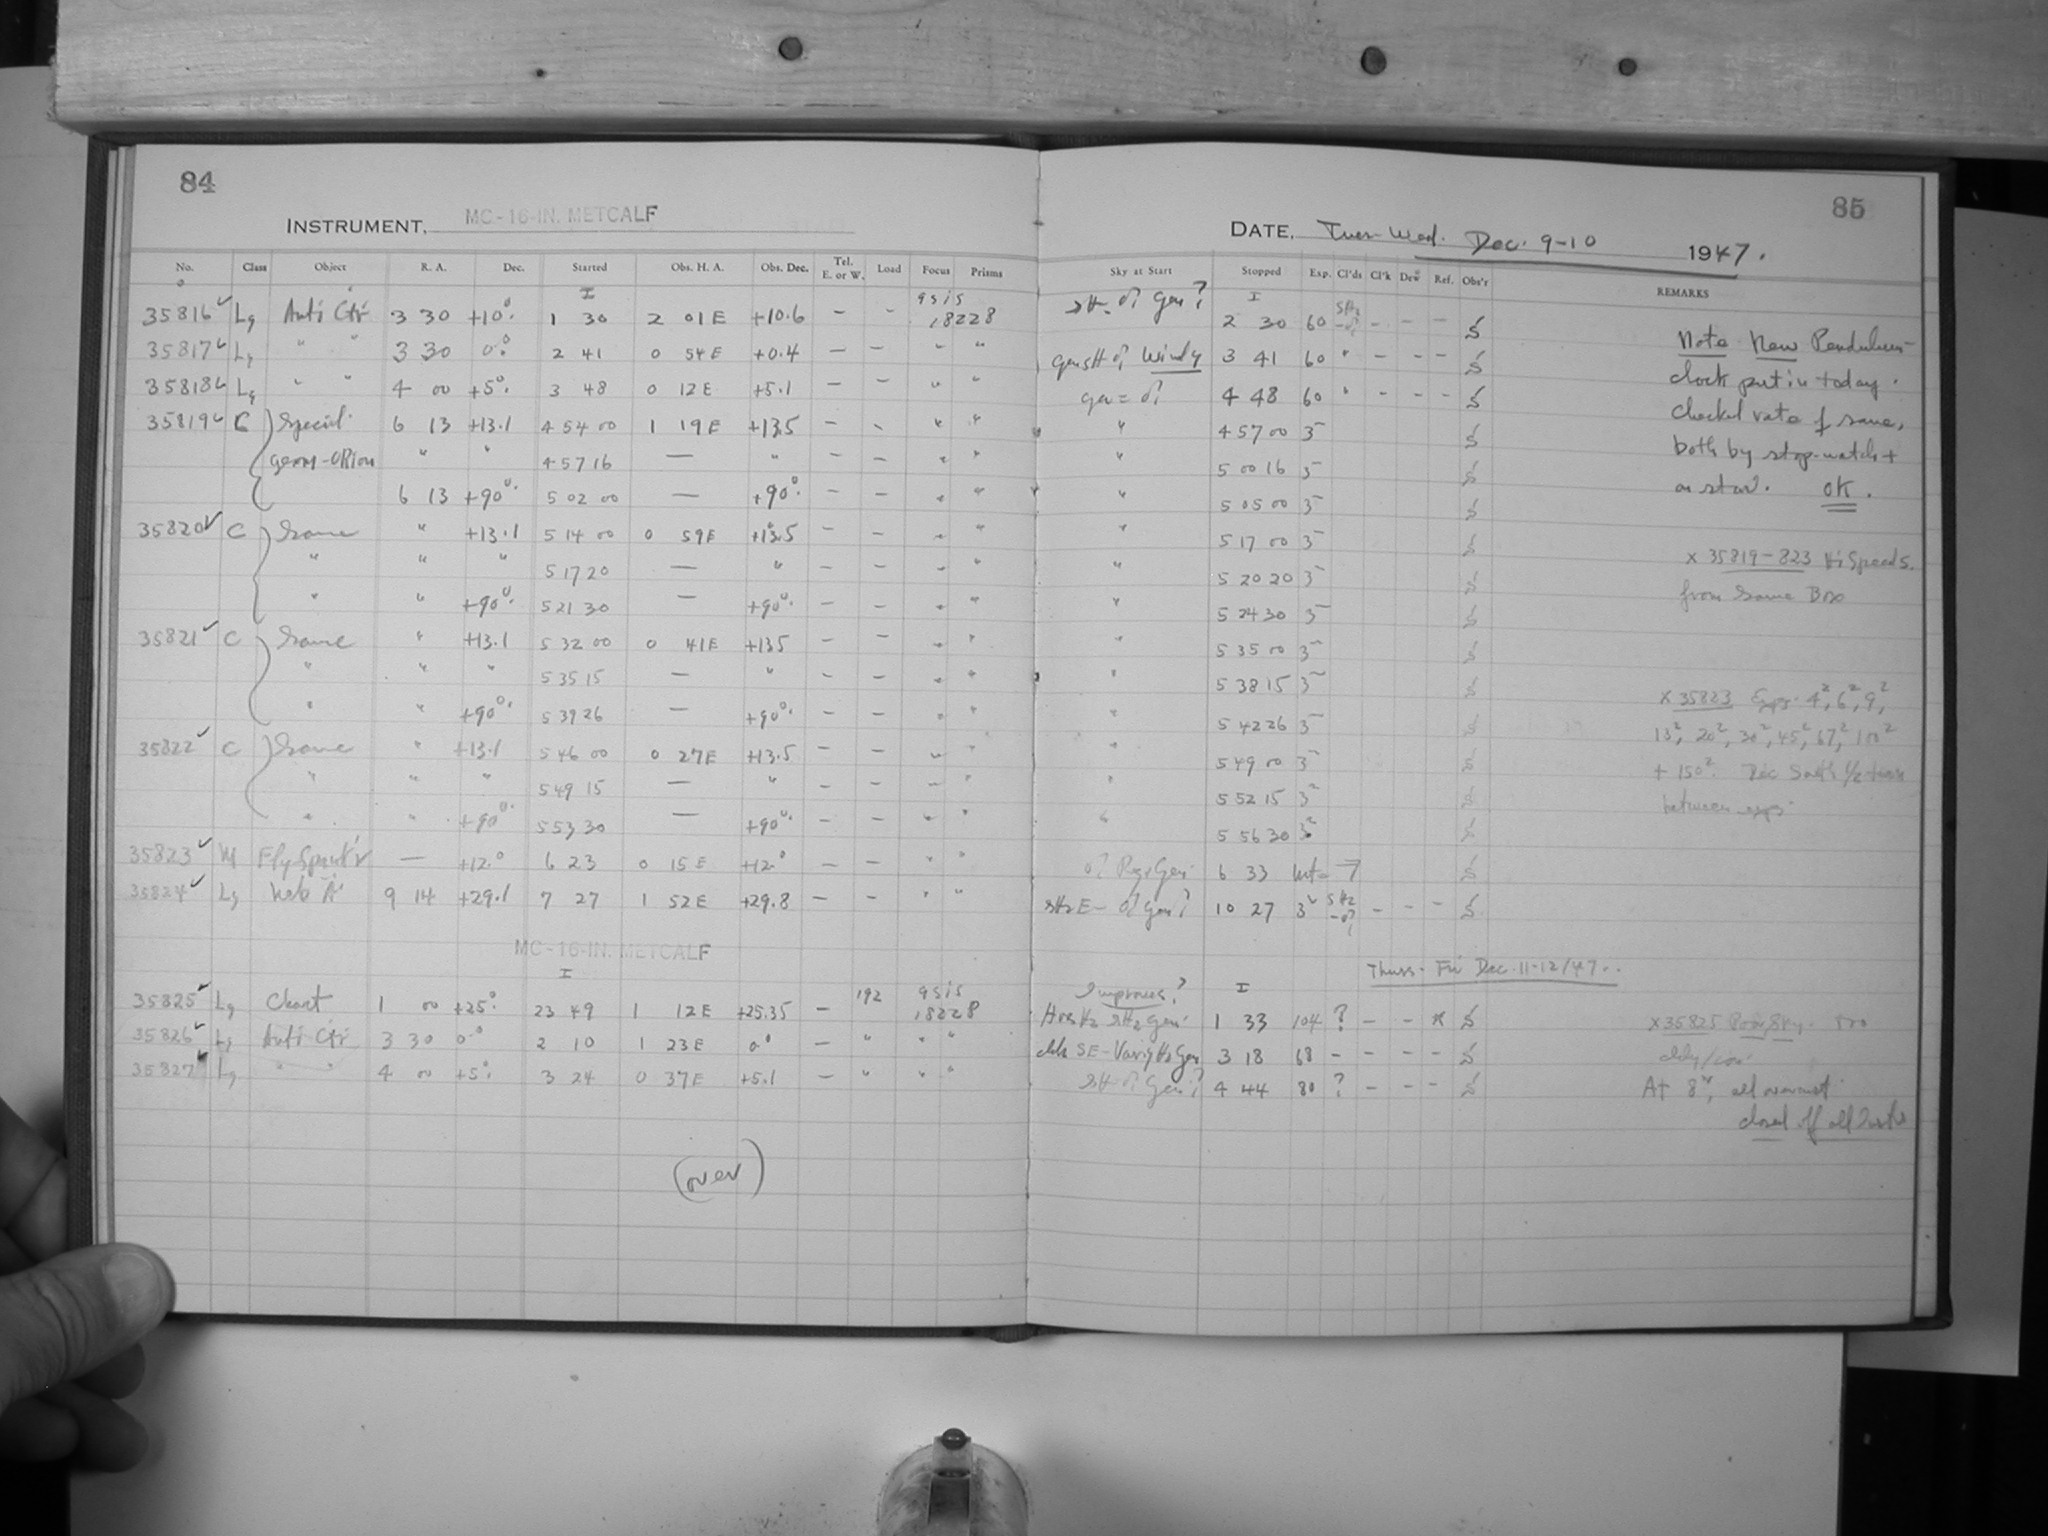 84
INSTRUMENT, MC-16-IN. METCALF
No. Class Object R. A. Dec. Started Obs. H. A. Obs. Dec. Tel. E. or W. Load Focus Prisms
35816 Lg Anti Ctr 3 30 +10° 1 30 2 01E +10.6 - - 18228
35817 Lg " " 3 30 0° 2 41 0 54E +0.4 - - " "
35818 Lg " " 4 00 +5° 3 48 0 12E +5.1 - - " "
35819 C Special 6 13 +13.1 4 54 00 1 19E +13.5 - - " "
Gem-Orion " " 4 57 16 — " - - " "
6 13 +90° 5 02 00 — +90° - - " "
35820 C Same " +13.1 5 14 00 0 59E +13.5 - - " "
" " " 5 17 20 — " - - " "
" " +90° 5 21 30 — +90° - - " "
35821 C Same " +13.1 5 32 00 0 41E +13.5 - - " "
" " " 5 35 15 — " - - " "
" " +90° 5 39 26 — +90° - - " "
35822 C Same " +13.1 5 46 00 0 27E +13.5 - - " "
" " " 5 49 15 — " - - " "
" " +90° 5 53 30 — +90° - - " "
35823 — +12° 6 23 0 15E +12° - - " "
35824 Lg 9 14 +29.1 7 27 1 52E +29.8 - - " "
MC-16-IN. METCALF
35825 Lg Chart 1 00 +25° 23 49 1 12E +25.35 - 192 18228
35826 Lg Anti Ctr 3 30 0° 2 10 1 23E 0° - " " "
35827 Lg " " 4 00 +5° 3 24 0 37E +5.1 - " " "
(over)
85
DATE, Tues-Wed. Dec. 9-10 1947.
Sky at Start Stopped Exp. Cl'ds Cl'k Dew Ref. Obs'r REMARKS
2 30 60 - - - S
Windy 3 41 60 " - - - S
4 48 60 " - - - S
" 4 57 00 3 S
" 5 00 16 3 S
" 5 05 00 3 S
" 5 17 00 3 S
" 5 20 20 3 S
" 5 24 30 3 S
" 5 35 00 3 S
" 5 38 15 3 S
" 5 42 26 3 S
" 5 49 00 3 S
" 5 52 15 3 S
" 5 56 30 3 S
6 33 S
10 27 3 - - - S
Thurs-Fri Dec. 11-12/47
Improves?
1 33 104 ? - - * S
3 18 68 - - - - S
4 44 80 ? - - - S
Note New Pendulum
clock put in today.
Checked rate of same,
both by stop-watch +
a star. OK.
x 35819-823 Hi Speeds.
from Same Box
x 35823 Exps. 4, 6, 9,
13, 20, 30, 45, 67, 100
+ 150. Dec South
between exps.
x 35825 Poor Sky.
At 8, all overcast
closed off